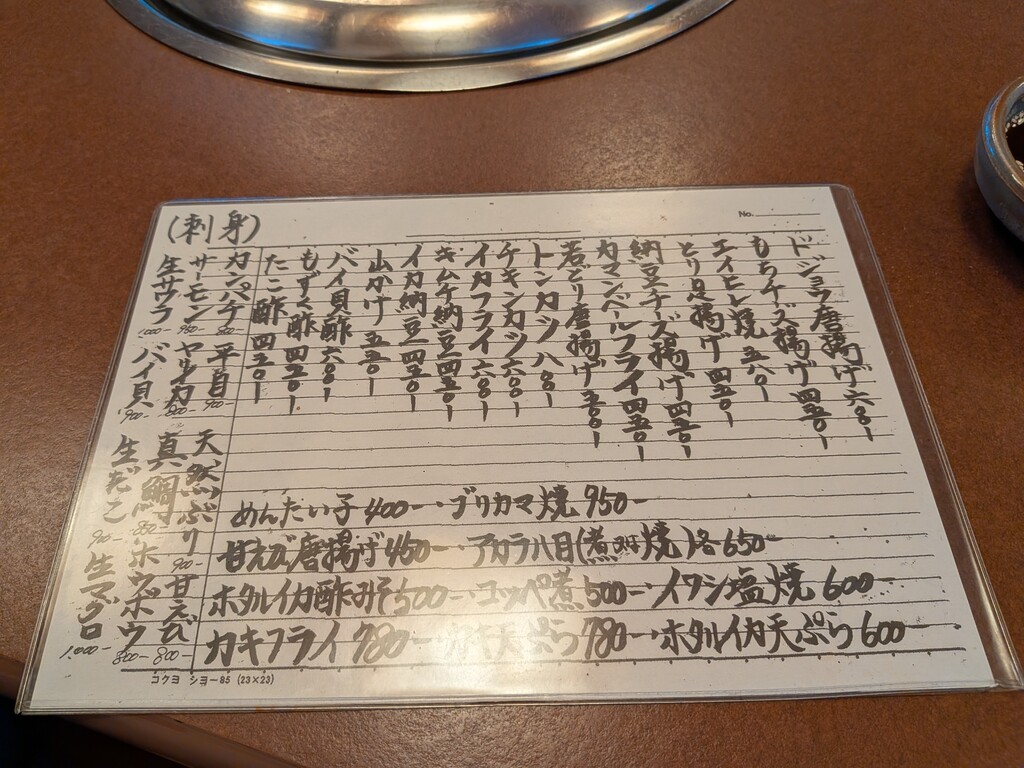 No.
ドジョウ唐揚げ六〇〇ー
もちチーズ揚げ四五〇ー
エイヒレ焼 五八〇ー
とり足揚げ四五〇ー
納豆チーズ揚げ四五〇ー
カマンベールフライ四五〇ー
若どり唐揚げ五〇〇ー
トンカツ八〇〇ー
チキンカツ六〇〇ー
イカフライ六〇〇ー
キムチ納豆四五〇ー
イカ納豆四五〇ー
山かけ 五五〇ー
バイ貝酢六〇〇ー
もずく酢四五〇ー
たこ酢四五〇ー
(刺身)
カンパチ 800-
サーモン
生サワラ 1000-
平目 900-
ヤリイカ 800-
バイ貝 900-
天然ぶり 900-
真鯛 850-
生だこ 900-
甘えび 800-
ホウボウ 800-
生マグロ 1,000-
めんたい子400-・ブリカマ焼950-
甘えび唐揚げ450-・アカラ八目(煮or焼)各650-
ホタルイカ酢みそ500-・コッペ煮500-・イワシ塩焼600-
カキフライ780-・カキ天ぷら780-・ホタルイカ天ぷら600-
コクヨ シヨー85 (23×23)